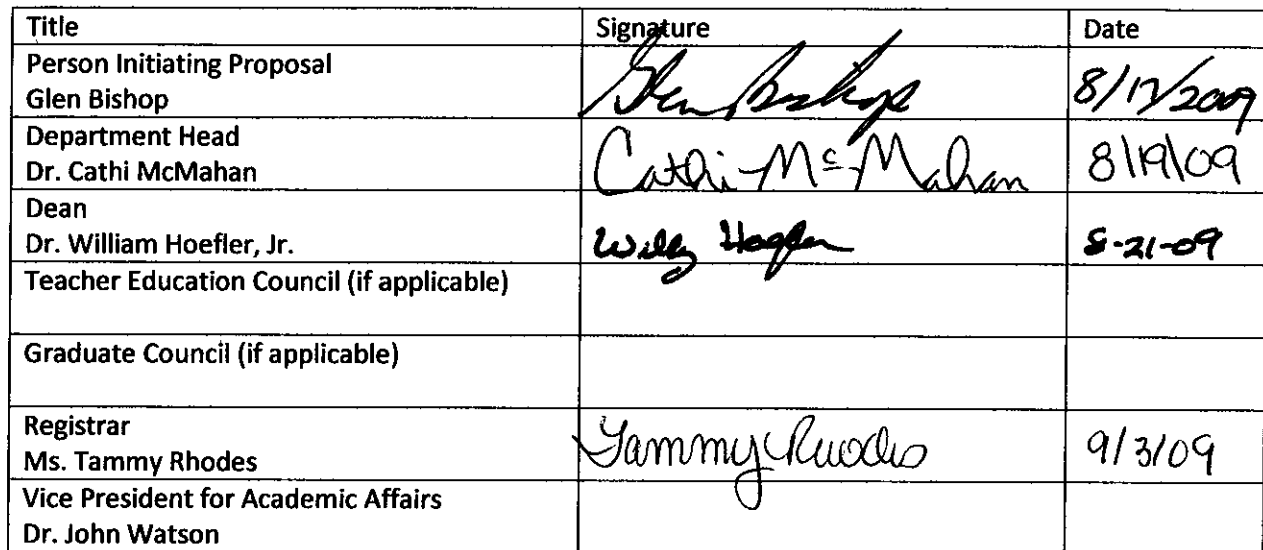 Title Signature Date
Person Initiating Proposal
Glen Bishop Glen Bishop 8/17/2009
Department Head
Dr. Cathi McMahan Cathi McMahan 8/19/09
Dean
Dr. William Hoefler, Jr. Willy Hoefler 8-21-09
Teacher Education Council (if applicable)
Graduate Council (if applicable)
Registrar
Ms. Tammy Rhodes Tammy Rhodes 9/3/09
Vice President for Academic Affairs
Dr. John Watson